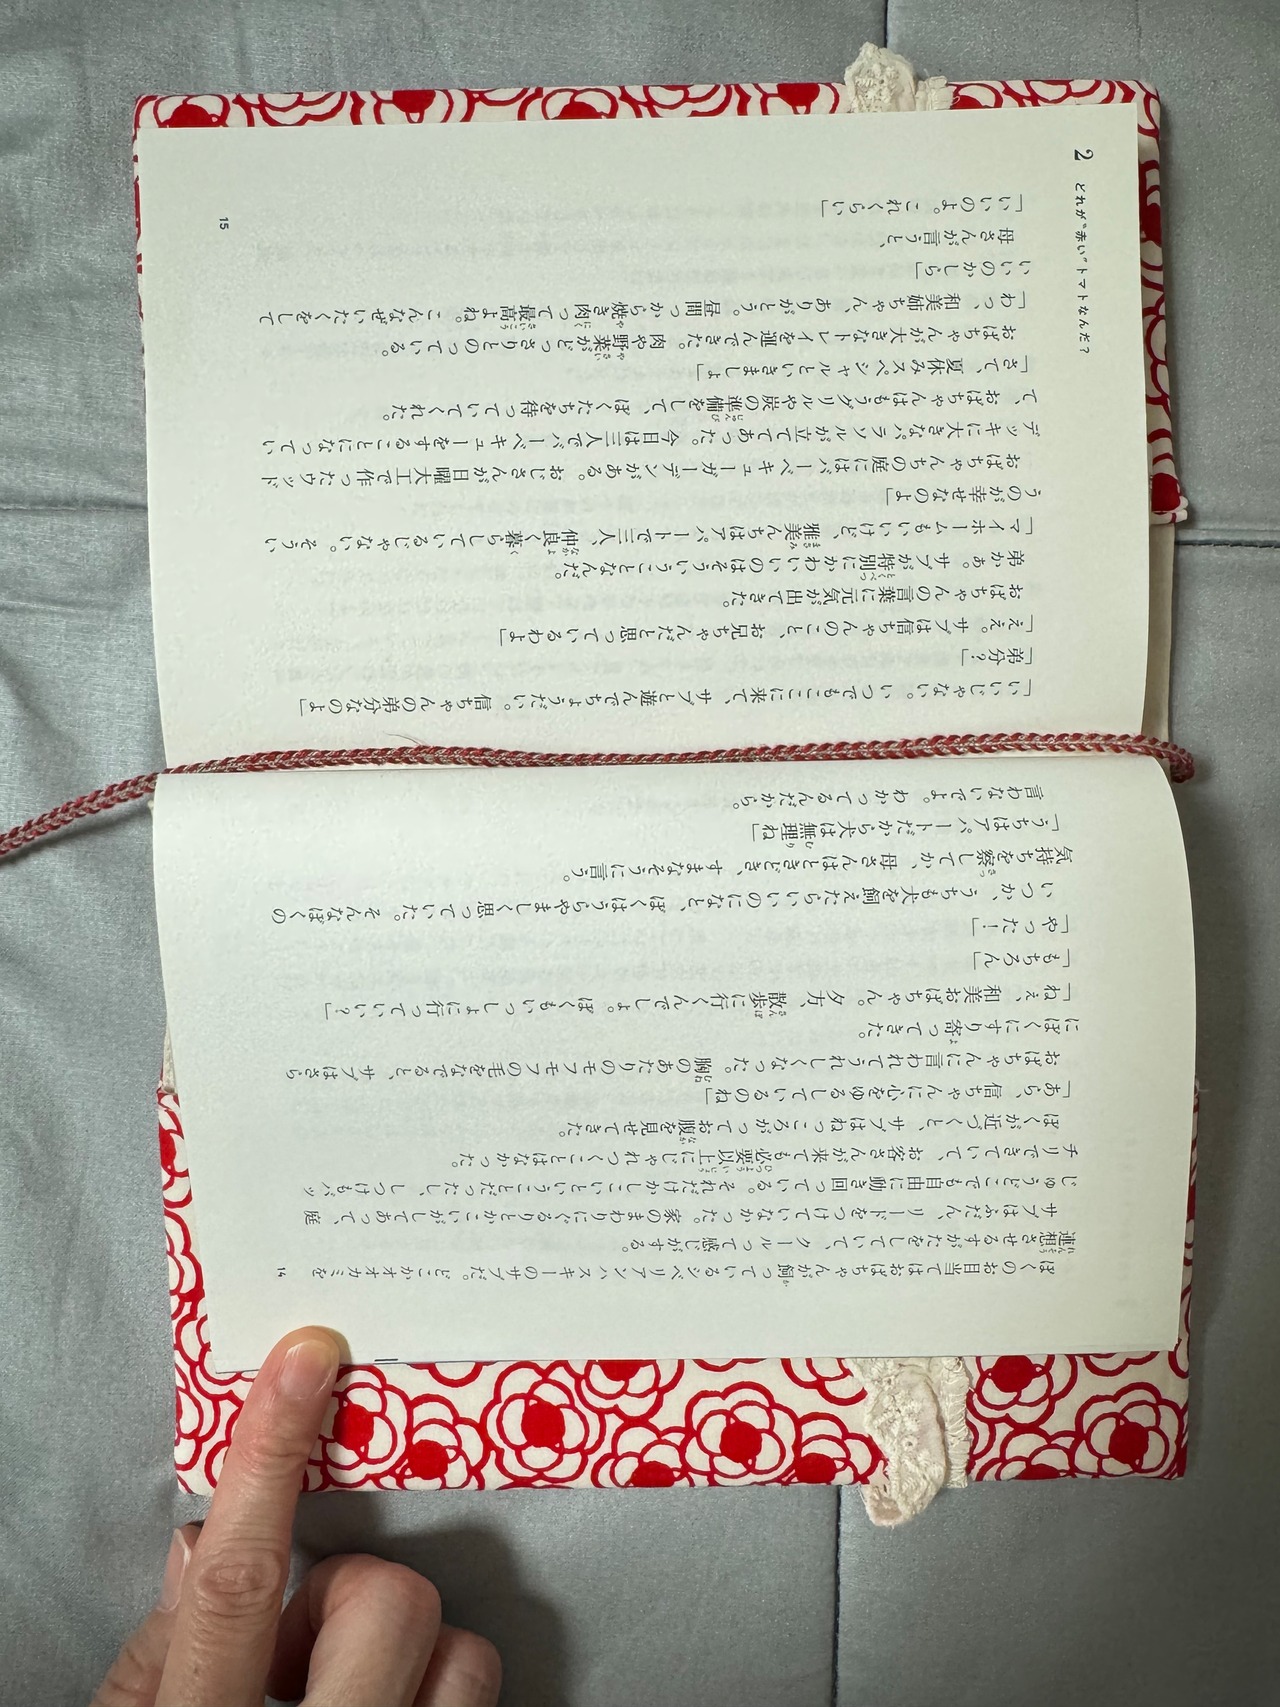 ぼくのお目当てはおばちゃんが飼っているシベリアンハスキーのサブだ。どこかオオカミを
連想させるすがたをしていて、クールって感じがする。
サブはふだん、リードをつけていなかった。家のまわりにぐるりとかこいがしてあって、庭
じゅうどこでも自由に動き回っている。それだけかしこいということだったし、しつけもバッ
チリできていて、お客さんが来ても必要以上にじゃれつくことはなかった。
ぼくが近づくと、サブはねっころがってお腹を見せてきた。
「あら、信ちゃんに心をゆるしているのね」
おばちゃんに言われてうれしくなった。胸のあたりのモフモフの毛をなでると、サブはさら
にぼくにすり寄ってきた。
「ねぇ、和美おばちゃん。夕方、散歩に行くんでしょ。ぼくもいっしょに行っていい？」
「もちろん」
「やったー！」
いつか、うちも犬を飼えたらいいのになと、ぼくはうらやましく思っていた。そんなぼくの
気持ちを察してか、母さんはときどき、すまなそうに言う。
「うちはアパートだから犬は無理ね」
言わないでよ。わかってるんだから。
14
2 どれが“赤い”トマトなんだ？
「いいじゃない。いつでもここに来て、サブと遊んでちょうだい。信ちゃんの弟分なのよ」
「弟分？」
「ええ。サブは信ちゃんのこと、お兄ちゃんだと思っているわよ」
おばちゃんの言葉に元気が出てきた。
弟かぁ。サブが特別にかわいいのはそういうことなんだ。
「マイホームもいいけど、雅美んちはアパートで三人、仲良く暮らしているじゃない。そうい
うのが幸せなのよ」
おばちゃんちの庭にはバーベキューガーデンがある。おじさんが日曜大工で作ったウッド
デッキに大きなパラソルが立ててあった。今日は三人でバーベキューをすることになってい
て、おばちゃんはもうグリルや炭の準備をして、ぼくたちを待っていてくれた。
「さて、夏休みスペシャルといきましょ」
おばちゃんが大きなトレイを運んできた。肉や野菜がどっさりとのっている。
「わっ、和美姉ちゃん、ありがとう。昼間っから焼き肉って最高よね。こんなぜいたくをして
いいのかしら」
母さんが言うと、
「いいのよ。これくらい」
15